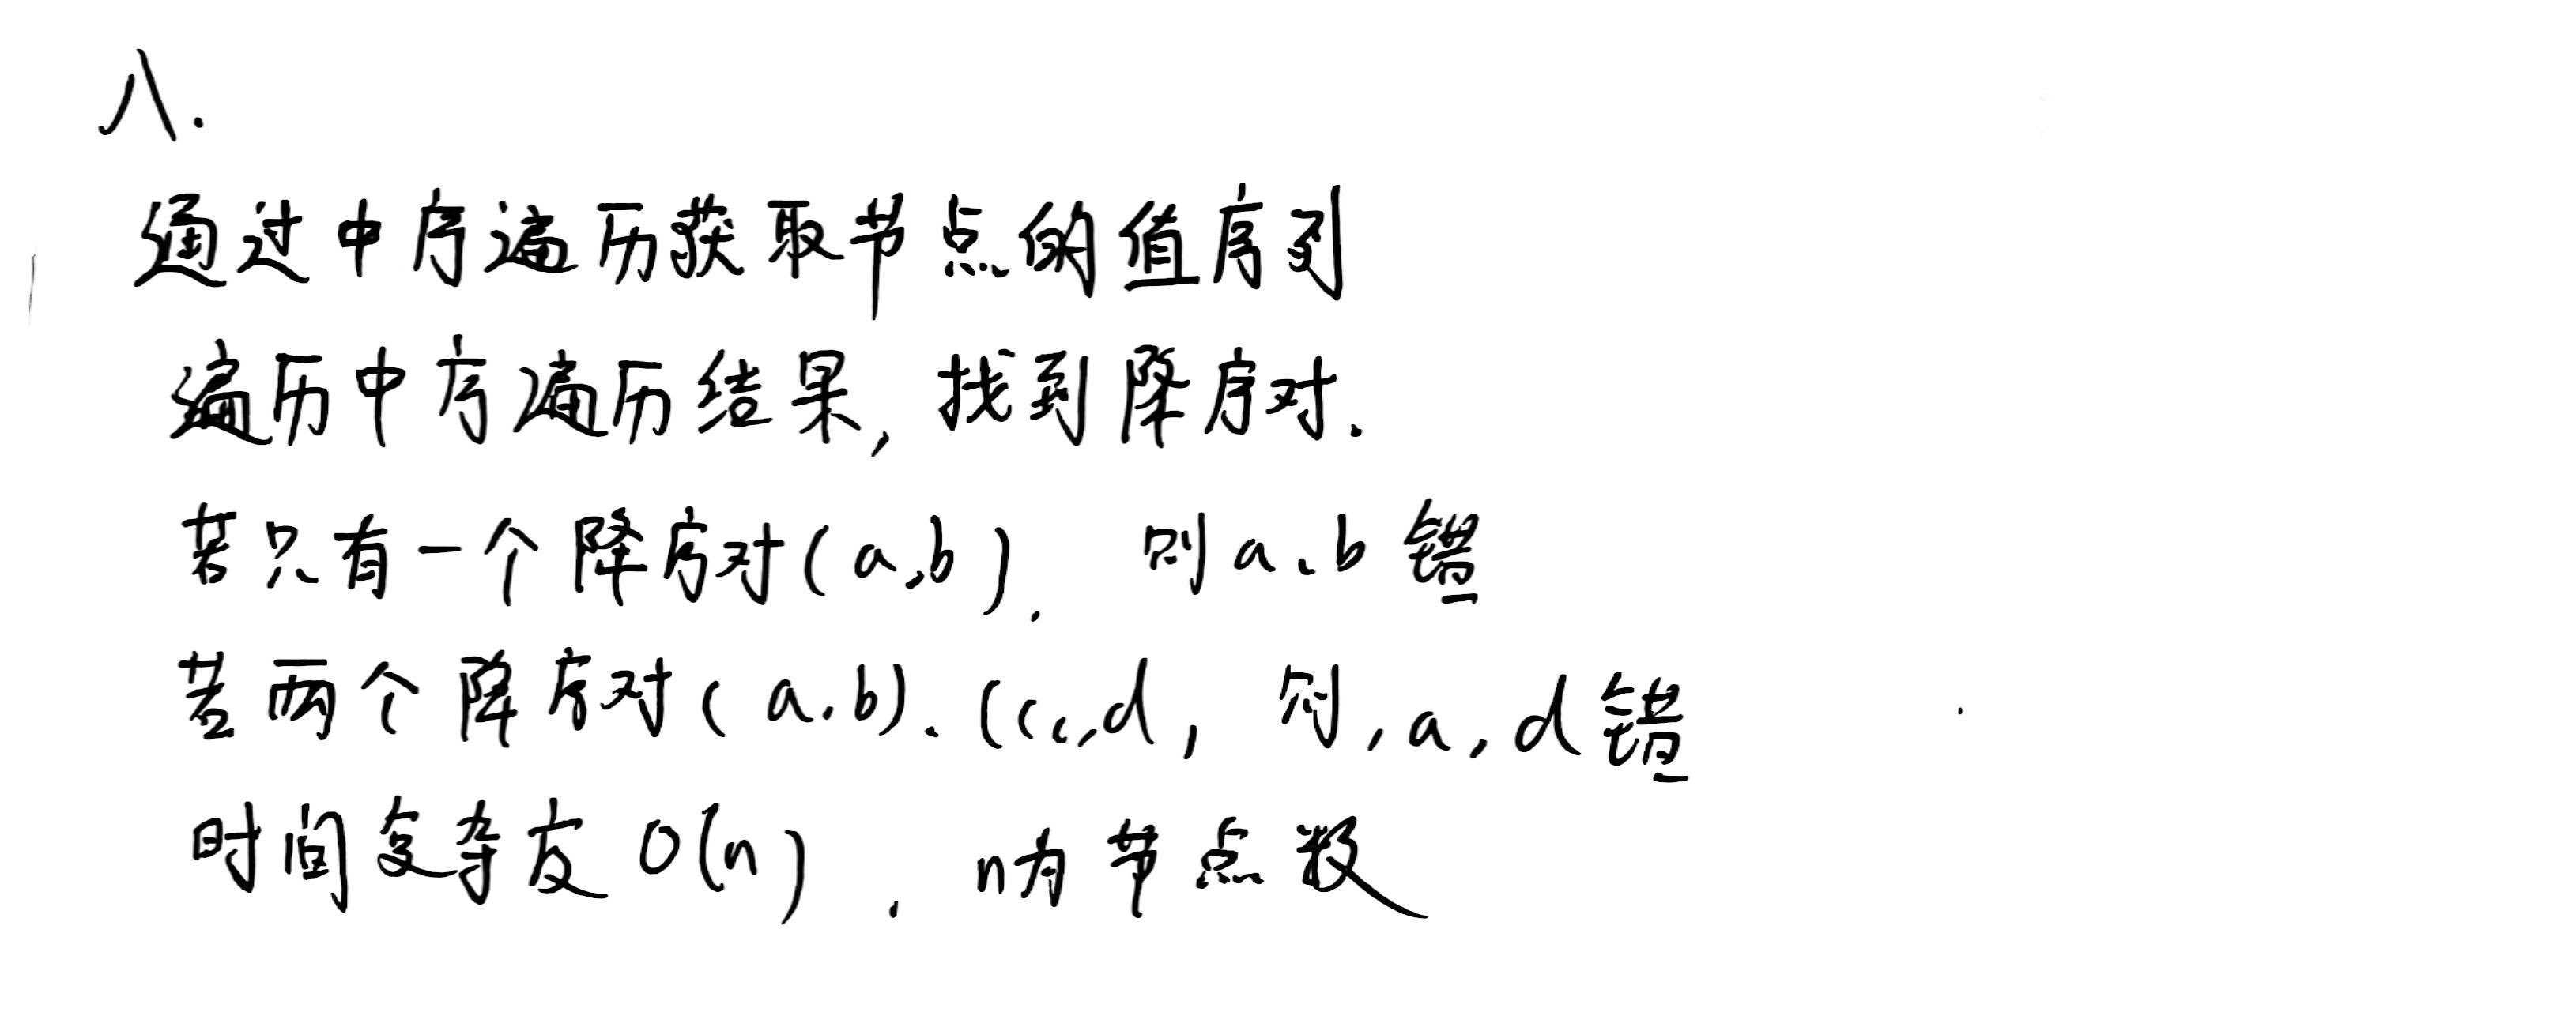 八.
通过中序遍历获取节点的值序列
遍历中序遍历结果,找到降序对.
若只有一个降序对(a,b). 则a、b错
若两个降序对(a.b)、(c,d, 则,a,d错
时间复杂度O(n). n为节点数